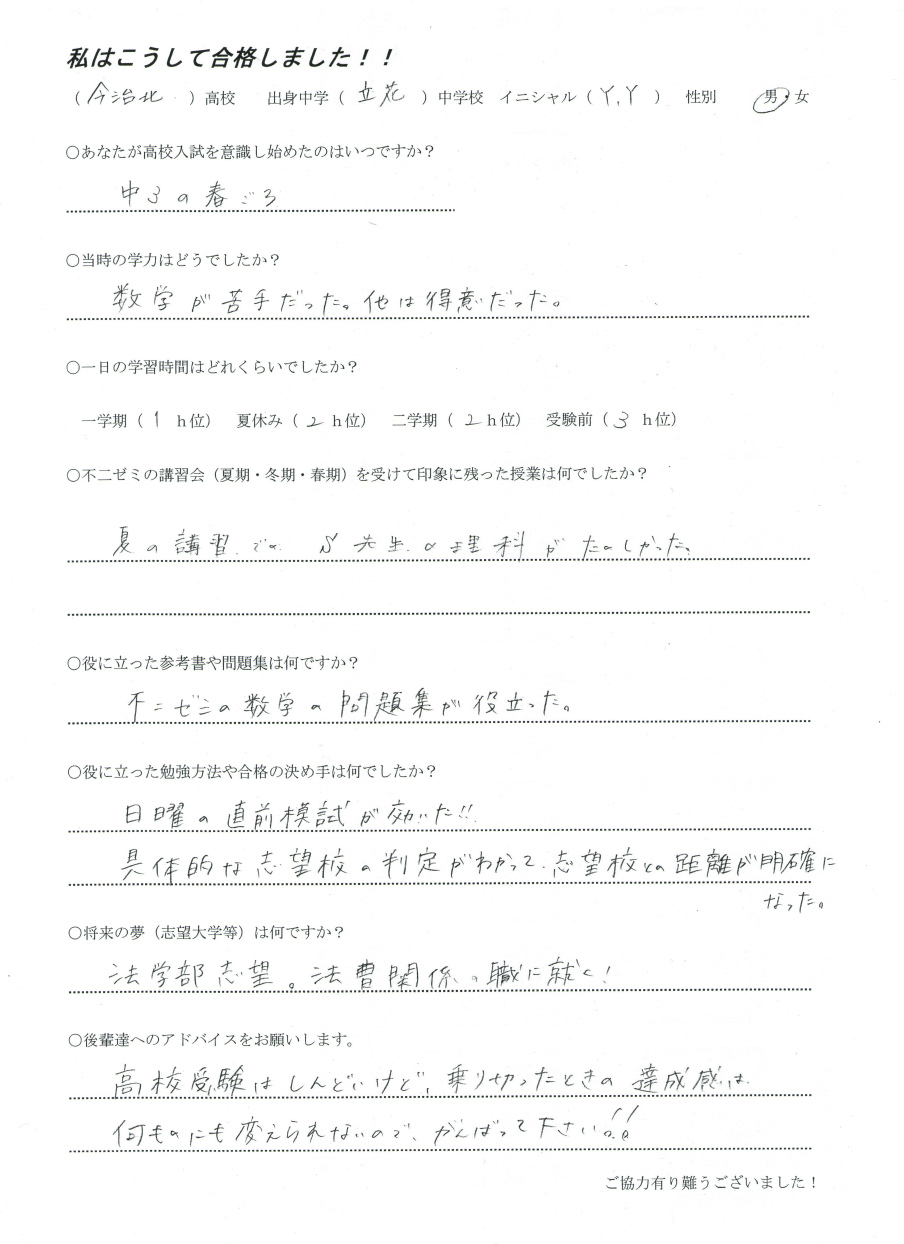 私はこうして合格しました！！
（今治北）高校　出身中学（立花）中学校　イニシャル（Y,Y）　性別　男・女
○あなたが高校入試を意識し始めたのはいつですか？
中3の春ごろ
○当時の学力はどうでしたか？
数学が苦手だった。他は得意だった。
○一日の学習時間はどれくらいでしたか？
一学期（1 h位）　夏休み（2 h位）　二学期（2 h位）　受験前（3 h位）
○不二ゼミの講習会（夏期・冬期・春期）を受けて印象に残った授業は何でしたか？
夏の講習での S先生の理科がたのしかった。
○役に立った参考書や問題集は何ですか？
不二ゼミの数学の問題集が役立った。
○役に立った勉強方法や合格の決め手は何でしたか？
日曜の直前模試が効いた!!
具体的な志望校の判定がわかって、志望校との距離が明確に
なった。
○将来の夢（志望大学等）は何ですか？
法学部志望。法曹関係の職に就く！
○後輩達へのアドバイスをお願いします。
高校受験はしんどいけど、乗り切ったときの達成感は
何ものにも変えられないので、がんばって下さい!!
ご協力有り難うございました！